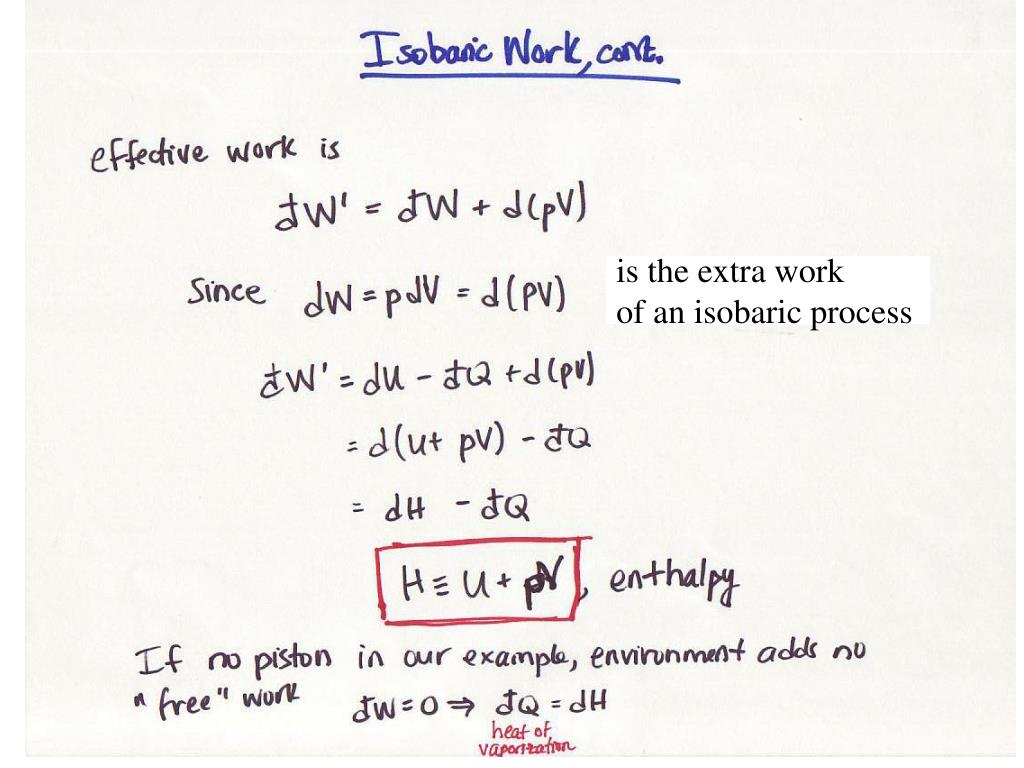 Isobaric Work, cont.
effective work is
đW' = đW + d(pV)
Since dW = pdV = d(pV)
is the extra work
of an isobaric process
đW' = dU - đQ + d(pV)
= d(U + pV) - đQ
= dH - đQ
H ≡ U + pV, enthalpy
If no piston in our example, environment adds no
"free" work đW = 0 ⇒ đQ = dH
heat of
vaporization